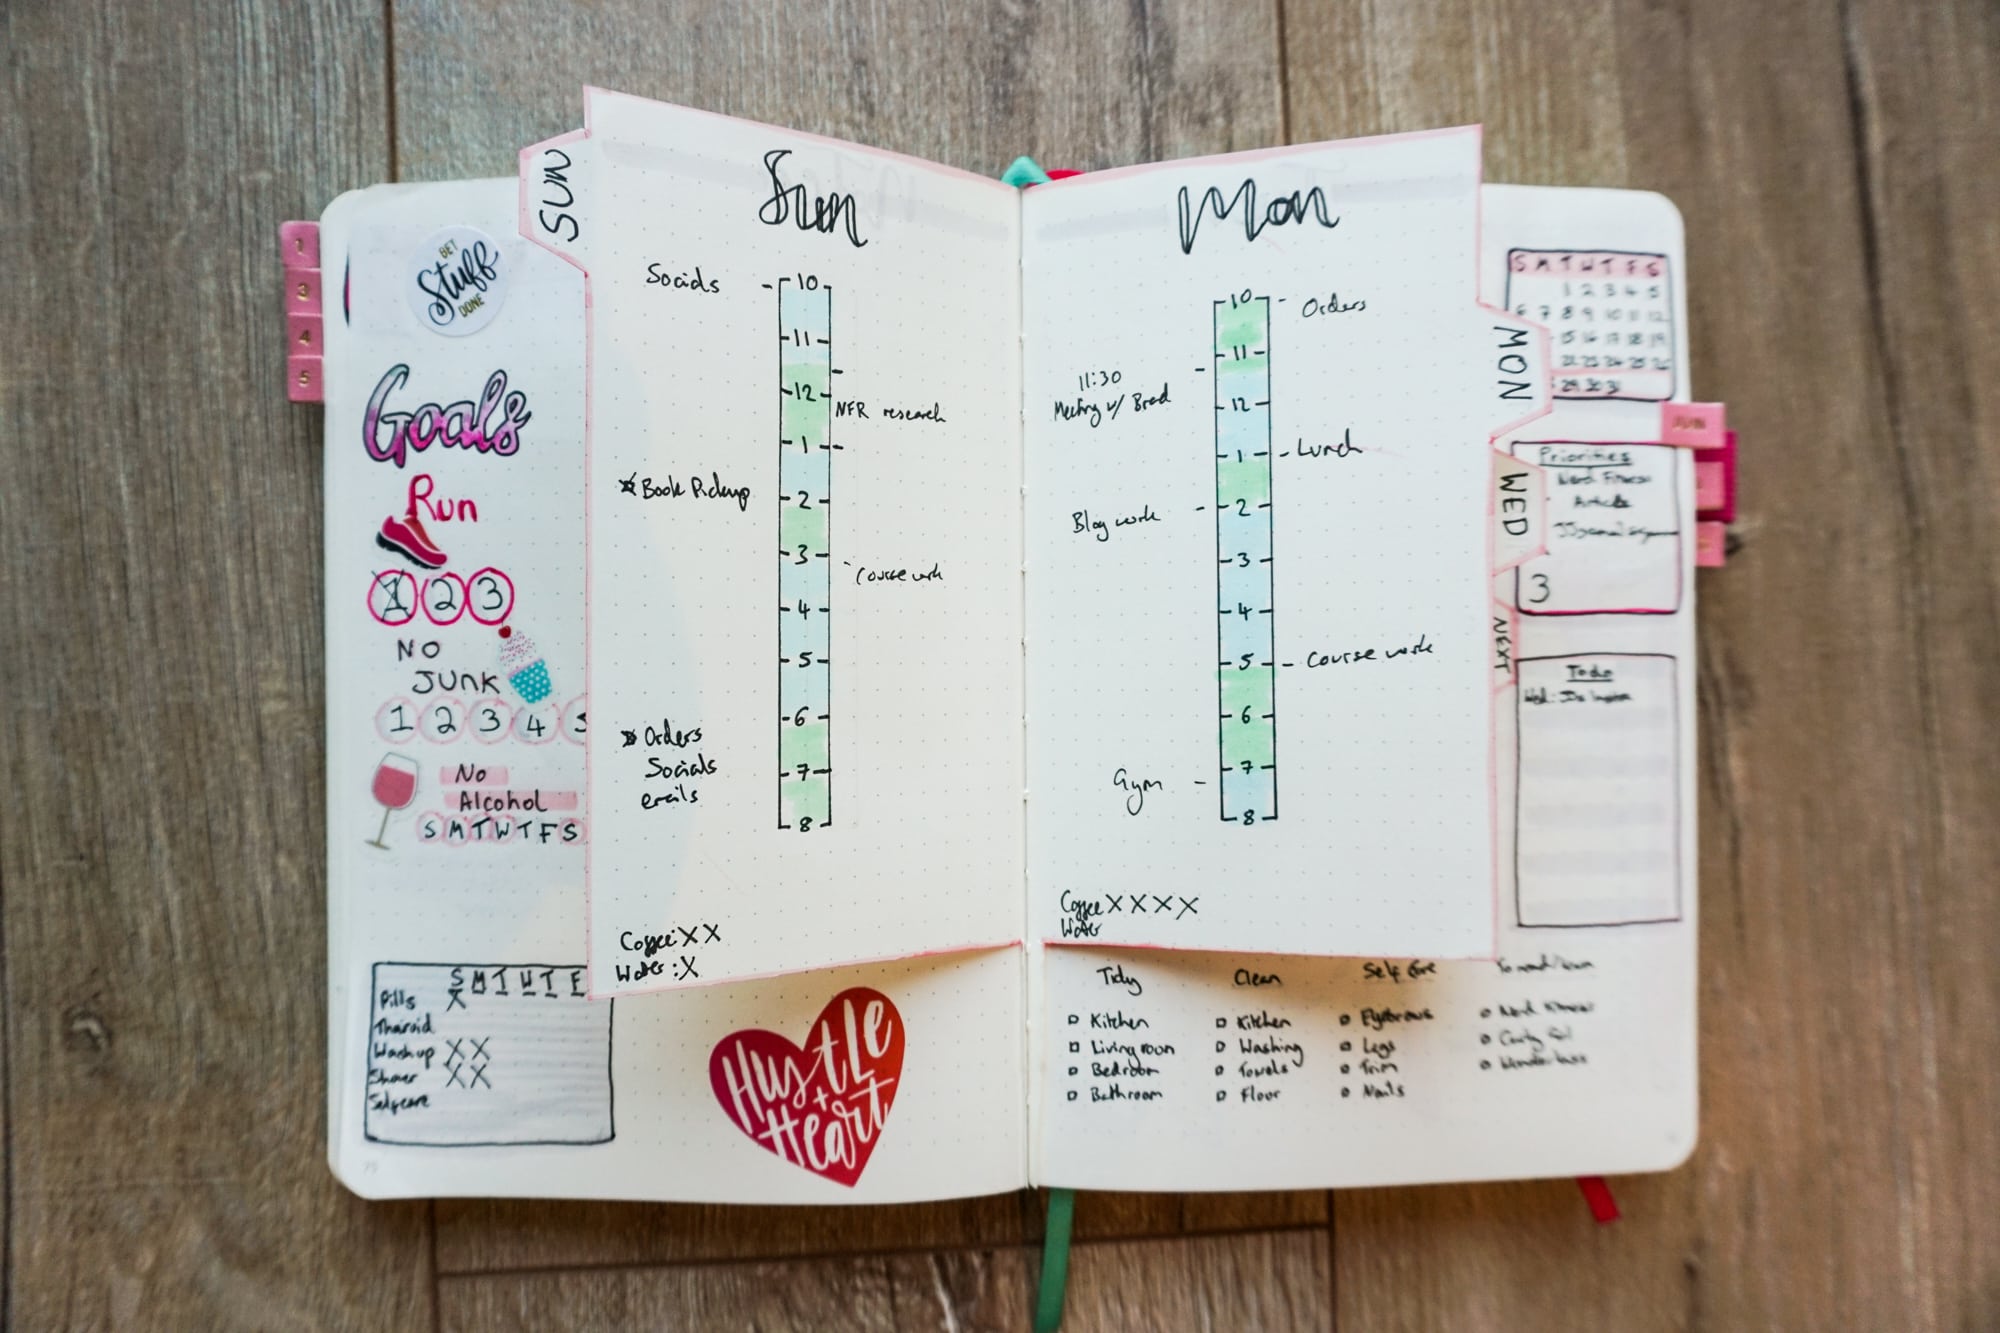 1
3
4
5
GET
Stuff
DONE
Goals
Run
1 2 3
NO
JUNK
1 2 3 4 5
No
Alcohol
S M T W T F S
S M T W T F
Pills
Thairoid
Wash up X X
Shower X X
Selfcare
SUN
Sun
Socials
10
11
12
NFR research
1
Book Pickup
2
3
Course work
4
5
6
Orders
Socials
emails
7
8
Coffee: X X
Water: X
Hustle
+
Heart
Mon
10
Orders
11
11:30
Meeting w/ Brad
12
1
Lunch
Blog work
2
3
4
5
Course work
6
7
Gym
8
Coffee X X X X
Water
Tidy
Kitchen
Living room
Bedroom
Bathroom
Clean
Kitchen
Washing
Towels
Floor
Self Care
Eyebrows
Legs
Trim
Nails
MON
WED
NEXT
S M T W T F S
1 2 3 4 5
6 7 8 9 10 11 12
15 16 17 18 19
22 23 24 25 26
29 30 31
JUN
Priorities
Nerd Fitness
Article
3
Todo